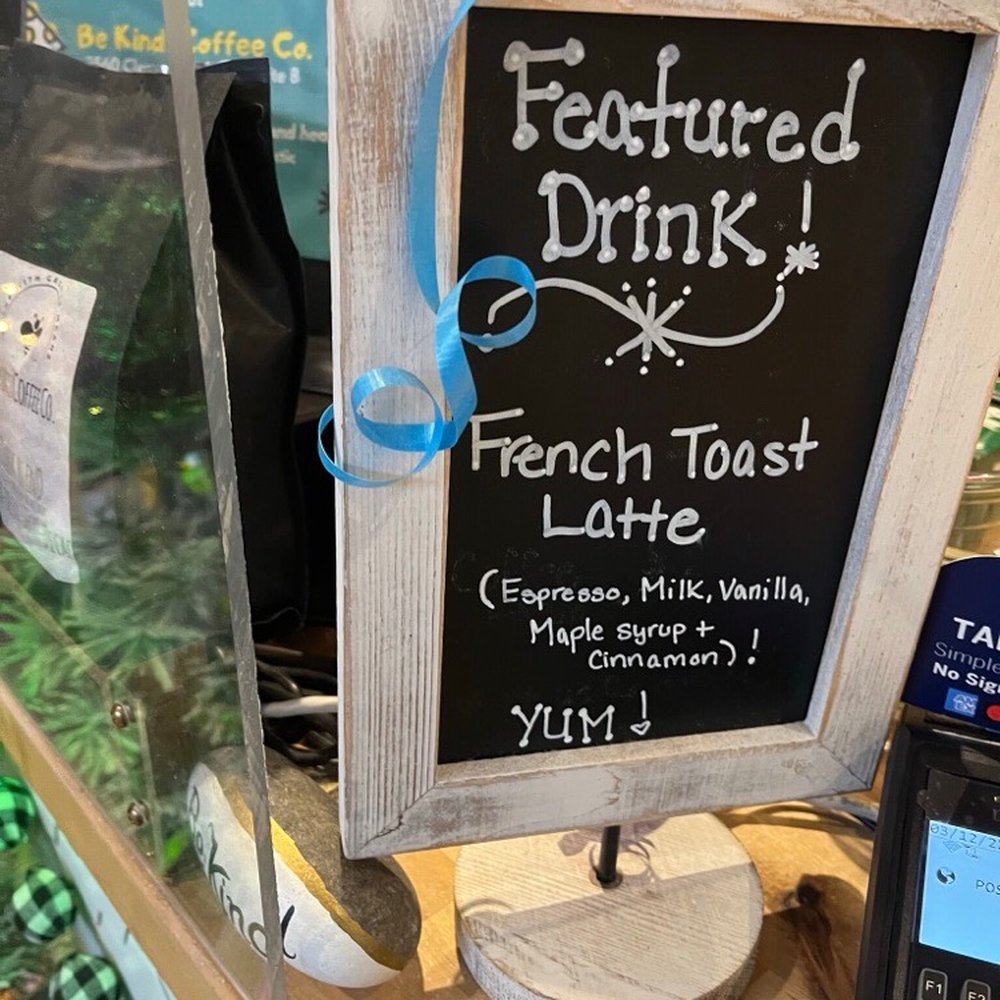 Be Kind Coffee Co.
Featured
Drink!
French Toast
Latte
(Espresso, Milk, Vanilla,
Maple syrup +
Cinnamon)!
YUM!
Be kind
COFFEE CO.
No Sig
03/12/2
POS
F1